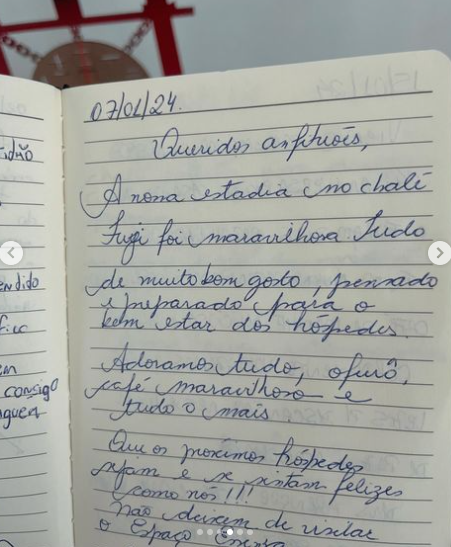 07/01/24.
Queridos anfitriões,
A nossa estadia no chalé
Fugi foi maravilhosa. Tudo
de muito bom gosto, pensado
e preparado para o
bem estar dos hóspedes.
Adoramos tudo, ofurô,
café maravilhoso e
tudo o mais
Que os proximos hóspedes
sejam e se sintam felizes
como nós!!!
Não deixem de visitar
o Espaço
endido
consigo